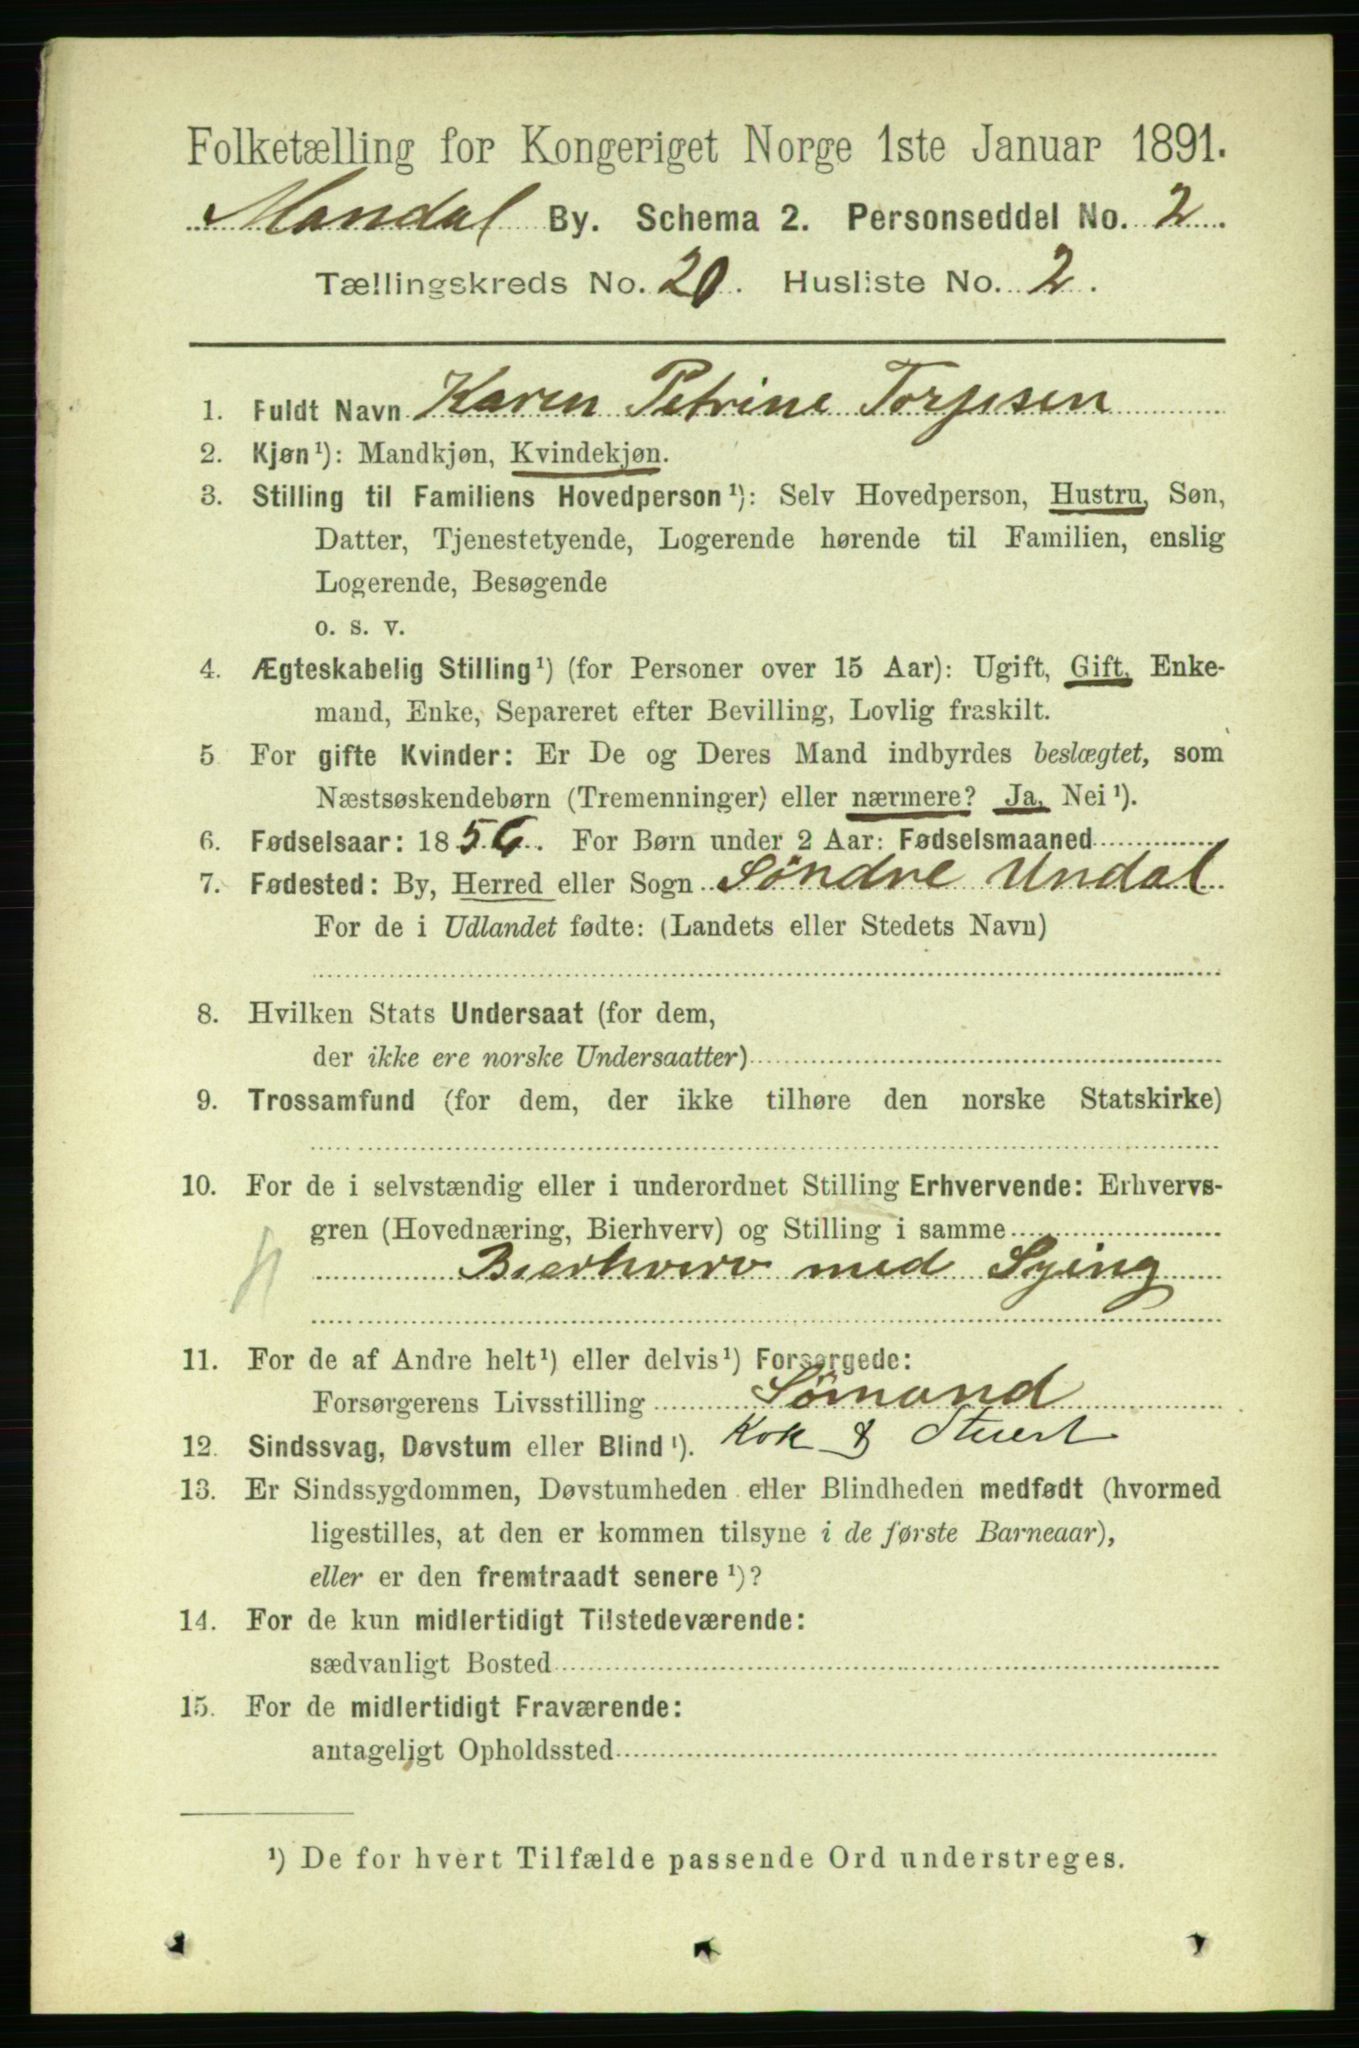 Folketælling for Kongeriget Norge 1ste Januar 1891.
Mandal By. Schema 2. Personseddel No. 2.
Tællingskreds No. 20. Husliste No. 2.
1. Fuldt Navn Karen Petrine Torjesen
2. Kjøn¹): Mandkjøn, Kvindekjøn.
3. Stilling til Familiens Hovedperson¹): Selv Hovedperson, Hustru, Søn,
Datter, Tjenestetyende, Logerende hørende til Familien, enslig
Logerende, Besøgende
o. s. v.
4. Ægteskabelig Stilling¹) (for Personer over 15 Aar): Ugift, Gift, Enke-
mand, Enke, Separeret efter Bevilling, Lovlig fraskilt.
5 For gifte Kvinder: Er De og Deres Mand indbyrdes beslægtet, som
Næstsøskendebørn (Tremenninger) eller nærmere? Ja, Nei¹).
6. Fødselsaar: 1856. For Børn under 2 Aar: Fødselsmaaned
7. Fødested: By, Herred eller Sogn Söndre Undal
For de i Udlandet fødte: (Landets eller Stedets Navn)
8. Hvilken Stats Undersaat (for dem,
der ikke ere norske Undersaatter)
9. Trossamfund (for dem, der ikke tilhøre den norske Statskirke)
10. For de i selvstændig eller i underordnet Stilling Erhvervende: Erhvervs-
gren (Hovednæring, Bierhverv) og Stilling i samme
Bierhverv med Sying
11. For de af Andre helt¹) eller delvis¹) Forsørgede:
Forsørgerens Livsstilling Sömand
12. Sindssvag, Døvstum eller Blind¹). Kok & Stuert
13. Er Sindssygdommen, Døvstumheden eller Blindheden medfødt (hvormed
ligestilles, at den er kommen tilsyne i de første Barneaar),
eller er den fremtraadt senere¹)?
14. For de kun midlertidigt Tilstedeværende:
sædvanligt Bosted
15. For de midlertidigt Fraværende:
antageligt Opholdssted
¹) De for hvert Tilfælde passende Ord understreges.